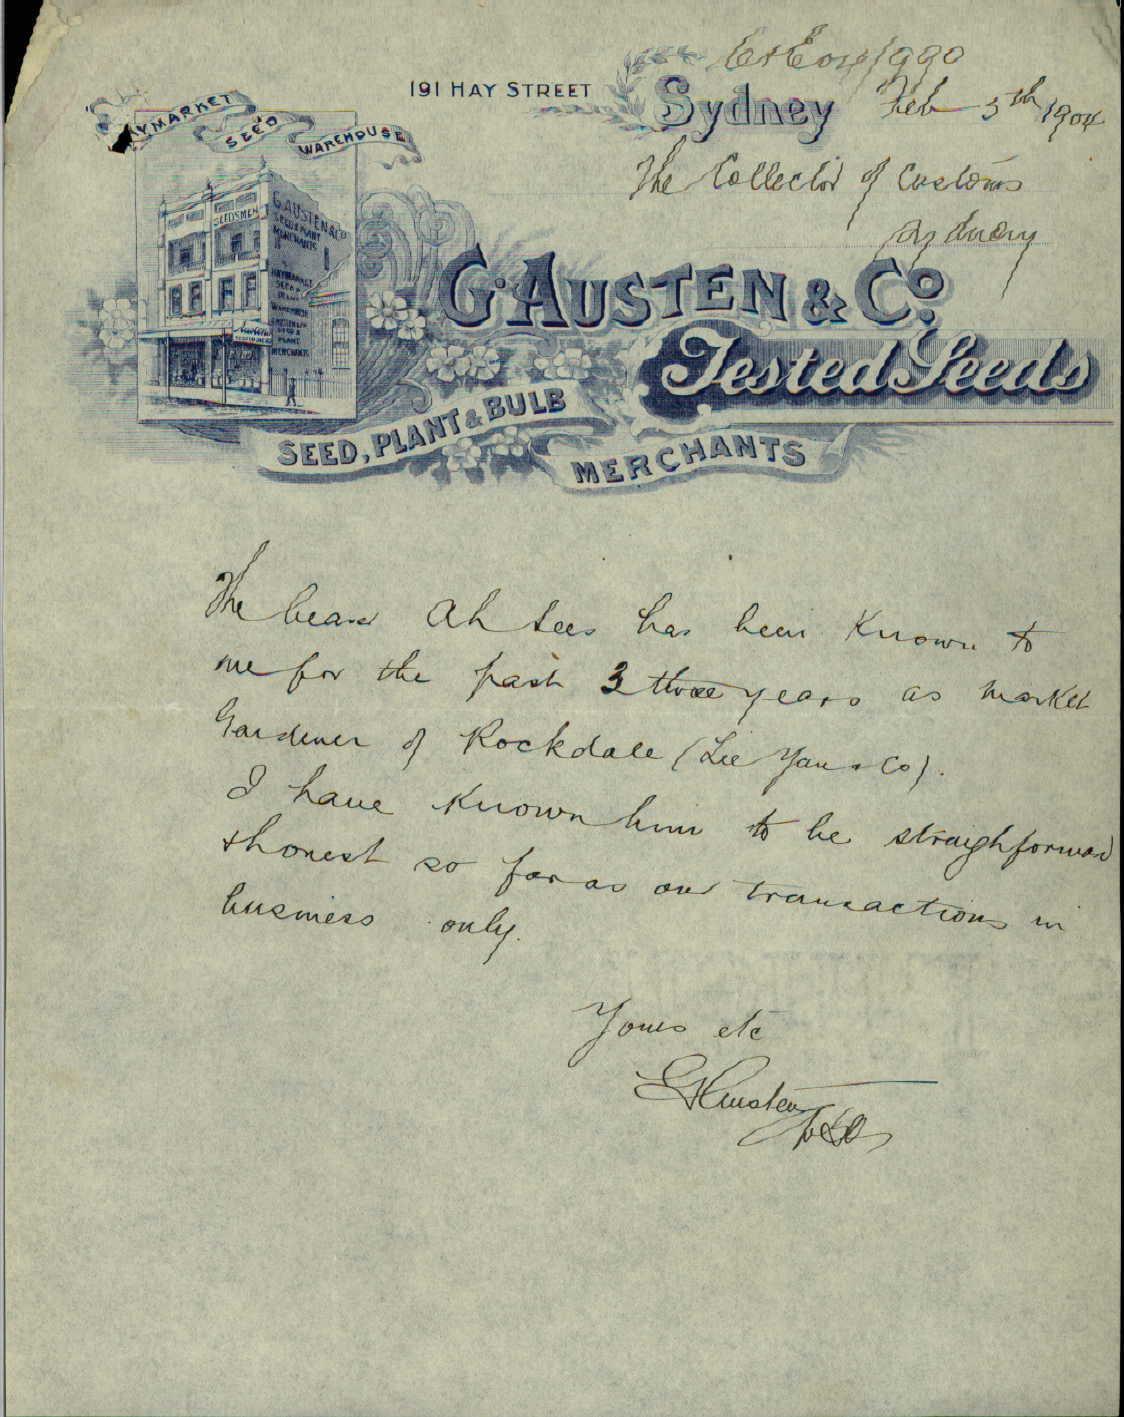 191 HAY STREET
Sydney Feb 5th 1904
The Collector of Customs
Sydney
HAYMARKET
SEED
WAREHOUSE
SEEDSMEN
G. AUSTEN & CO
SEED & PLANT
MERCHANTS
HAYMARKET
SEED
MERCHANTS
G. AUSTEN & CO.
Tested Seeds
SEED, PLANT & BULB
MERCHANTS
The bearer Ah Lees has been Known to
me for the past 3 three years as market
Gardener of Rockdale (Lee Yau & Co).
I have Known him to be straighforward
& honest so far as our transactions in
business only.
Yours etc
G Austen & Co